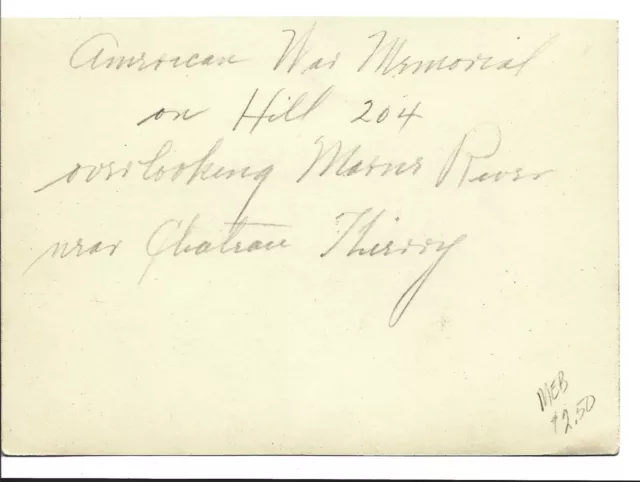 American War Memorial
on Hill 204
overlooking Marne River
near Chateau Thierry
MEB
$2.50